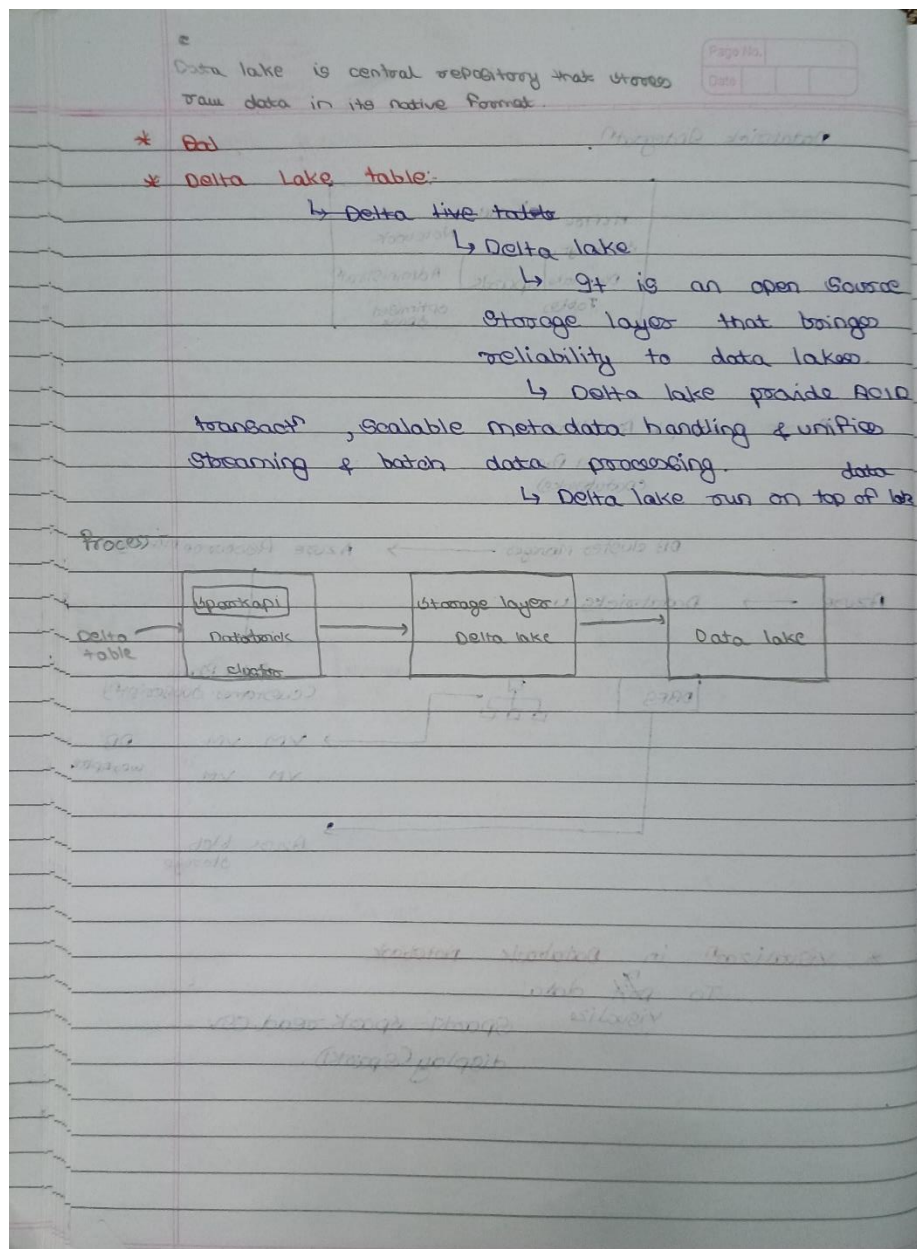 Data lake is central repository that stores
raw data in its native format.
Page No.
Date
*
* Delta Lake table:-
↳ Delta live
↳ Delta lake
↳ It is an open source
storage layer that bringes
reliability to data lakes.
↳ Delta lake provide ACID
transactⁿ, scalable metadata handling & unifies
streaming & batch data processing.
↳ Delta lake run on top of data
Process :-
Delta table
Sparkapi
Databrick
Storage layer
Delta lake
Data lake